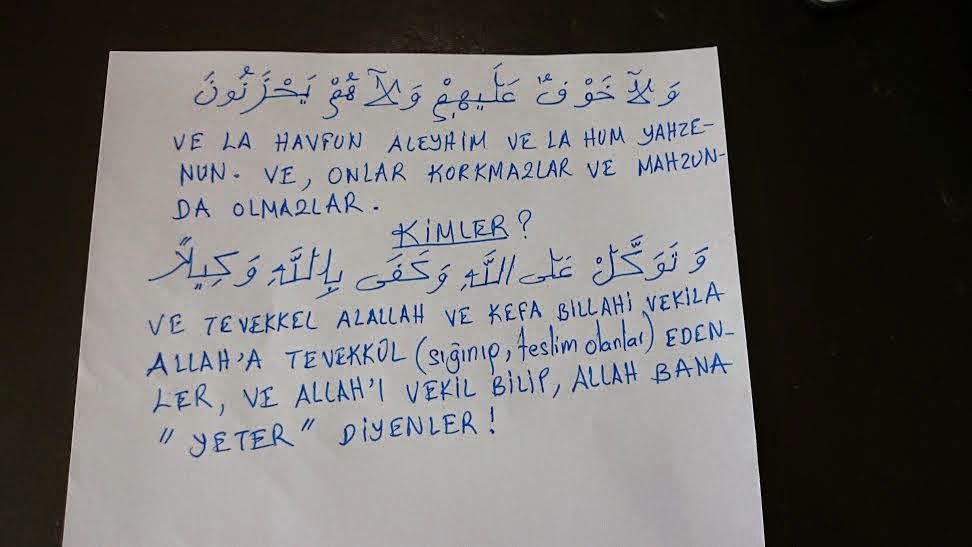 وَلاَ خَوْفٌ عَلَيهِمْ وَلاَ هُمْ يَحْزَنُونَ
VE LA HAVFUN ALEYHİM VE LA HUM YAHZE-
NUN. VE, ONLAR KORKMAZLAR VE MAHZUN-
DA OLMAZLAR.
KİMLER?
وَ تَوَكَّلْ عَلَى اللَّهِ وَكَفَى بِاللَّهِ وَكِيلاً
VE TEVEKKEL ALALLAH VE KEFA BİLLAHİ VEKİLA
ALLAH'A TEVEKKÜL (sığınıp, teslim olanlar) EDEN-
LER, VE ALLAH'I VEKİL BİLİP, ALLAH BANA
" YETER " DİYENLER!